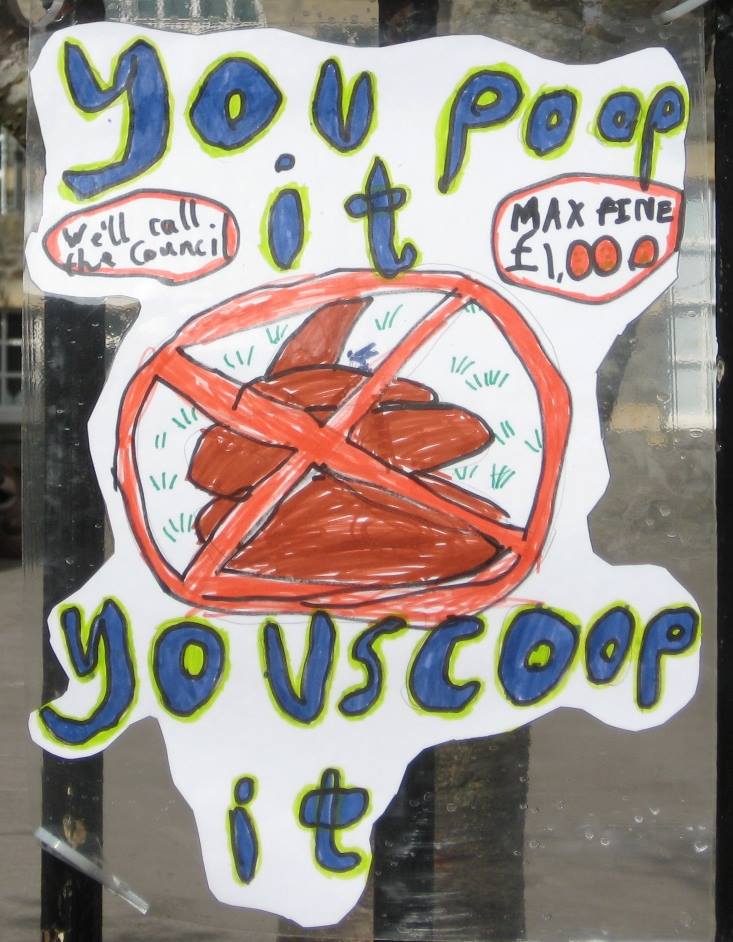 you poop
it
We'll call
the Council
MAX FINE
£1,000
you scoop
it